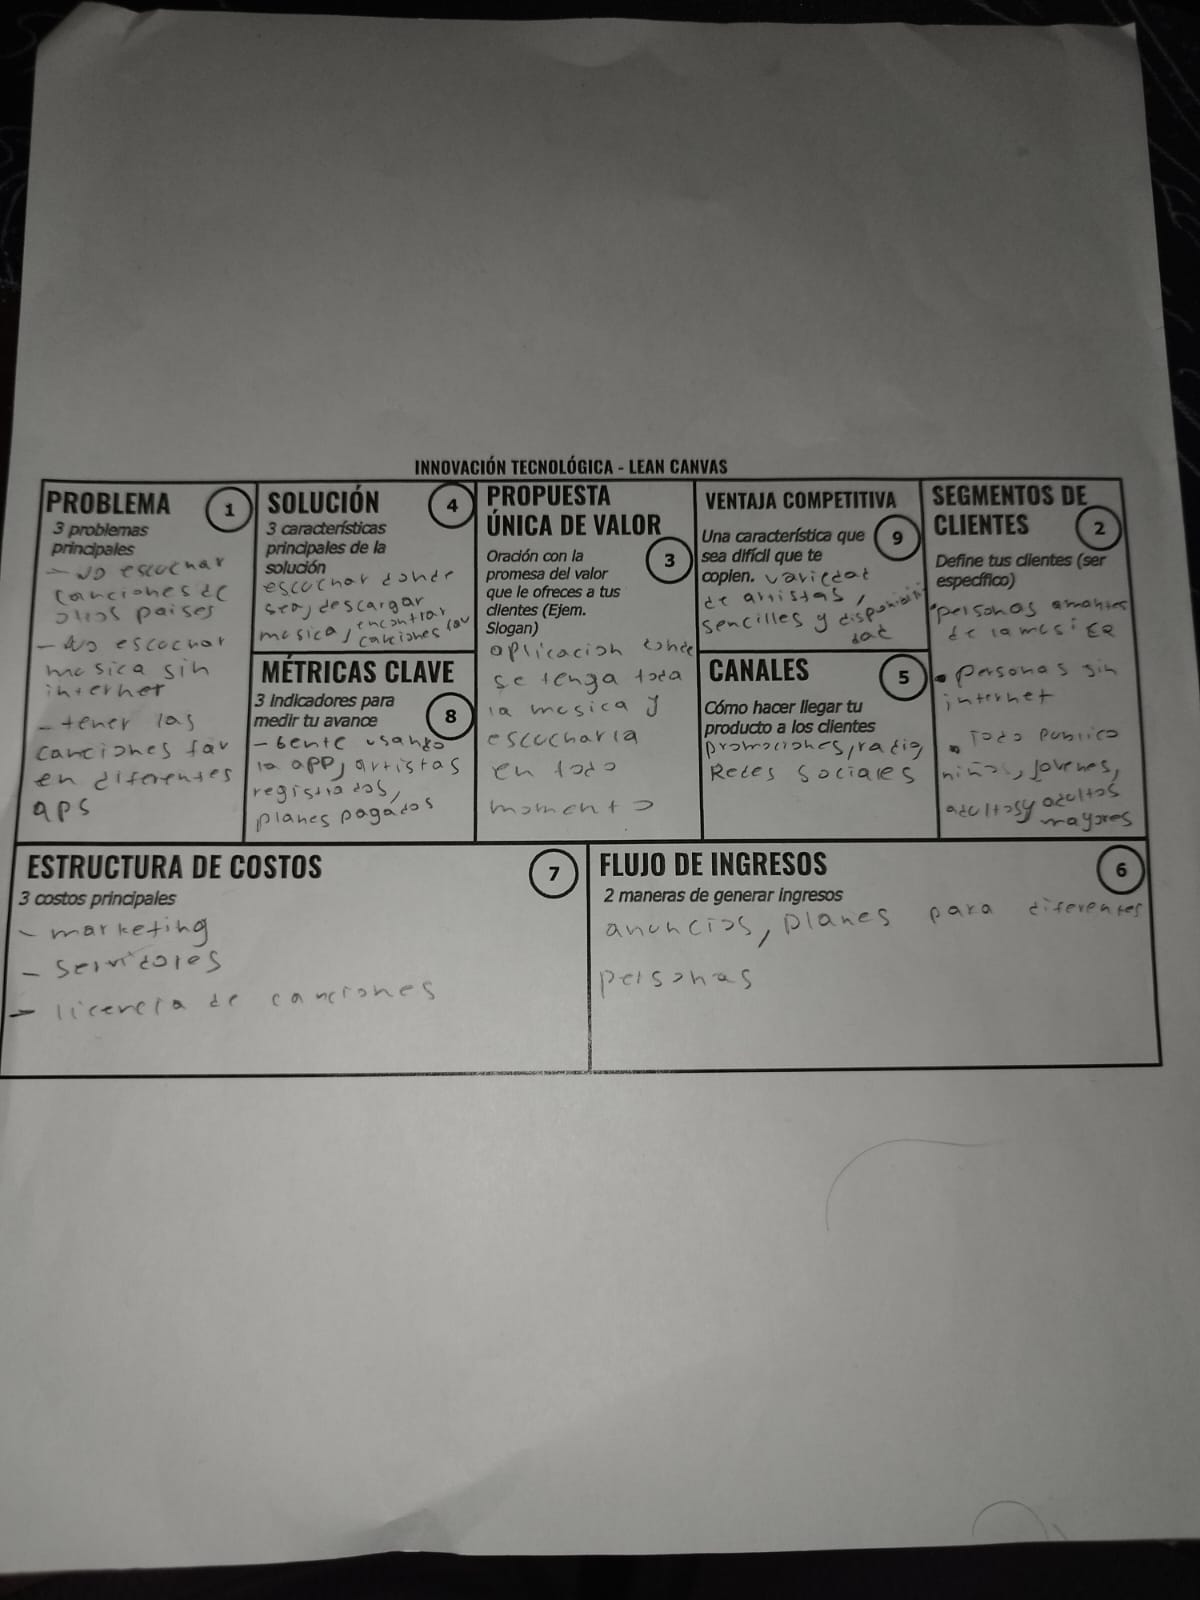 INNOVACIÓN TECNOLÓGICA - LEAN CANVAS
PROBLEMA
1
3 problemas
principales
- No escuchar
canciones de
otros paises
- No escuchar
musica sin
internet
- tener las
canciones fav
en diferentes
aps
SOLUCIÓN
4
3 características
principales de la
solución
escuchar donde
sea, descargar
musica, encontrar
canciones fav
MÉTRICAS CLAVE
3 indicadores para
medir tu avance
8
- Gente usando
la app, artistas
registrados,
planes pagados
PROPUESTA
ÚNICA DE VALOR
3
Oración con la
promesa del valor
que le ofreces a tus
clientes (Ejem.
Slogan)
aplicacion donde
se tenga toda
la musica y
escucharla
en todo
momento
VENTAJA COMPETITIVA
9
Una característica que
sea difícil que te
copien. variedad
de artistas,
sencilles y disponibili
dad
CANALES
5
Cómo hacer llegar tu
producto a los clientes
promociones, radio,
Redes sociales
SEGMENTOS DE
CLIENTES
2
Define tus clientes (ser
específico)
• personas amantes
de la musica
• personas sin
internet
• Todo publico
niños, jovenes,
adultos y adultos
mayores
ESTRUCTURA DE COSTOS
7
3 costos principales
- marketing
- servidores
- licencia de canciones
FLUJO DE INGRESOS
6
2 maneras de generar ingresos
anuncios, planes para diferentes
personas